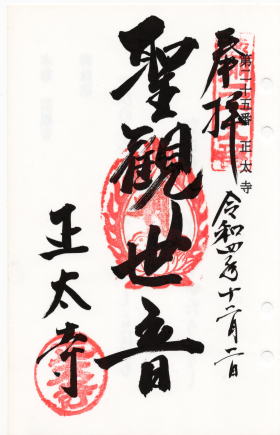 奉拝
第二十五番 正太寺
令和四年十二月二日
聖観世音
正太寺